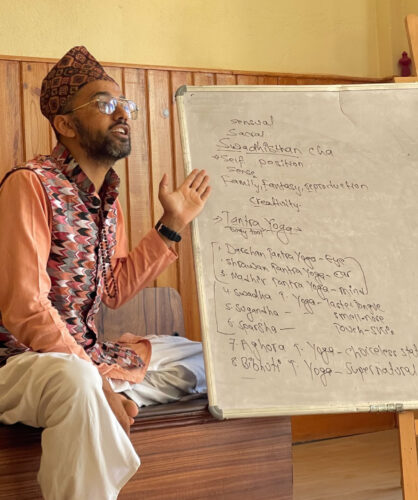 sensual
Sacral
Swadhisthan cha
→ Self position
Sense
Family, Fantasy, reproduction
Creativity.
→ Tantra Yoga
1. Darshan Tantra Yoga - Eye
2. Shrawan Tantra Yoga - ear
3. Tantra Yoga - mind
4. Swadha T. Yoga - Taste
5. Sugandha - Smell-nose
6. Sparsha - Touch-skin
7. Aghora T. Yoga - choiceless
8. Bibhuti T. Yoga - Supernatural